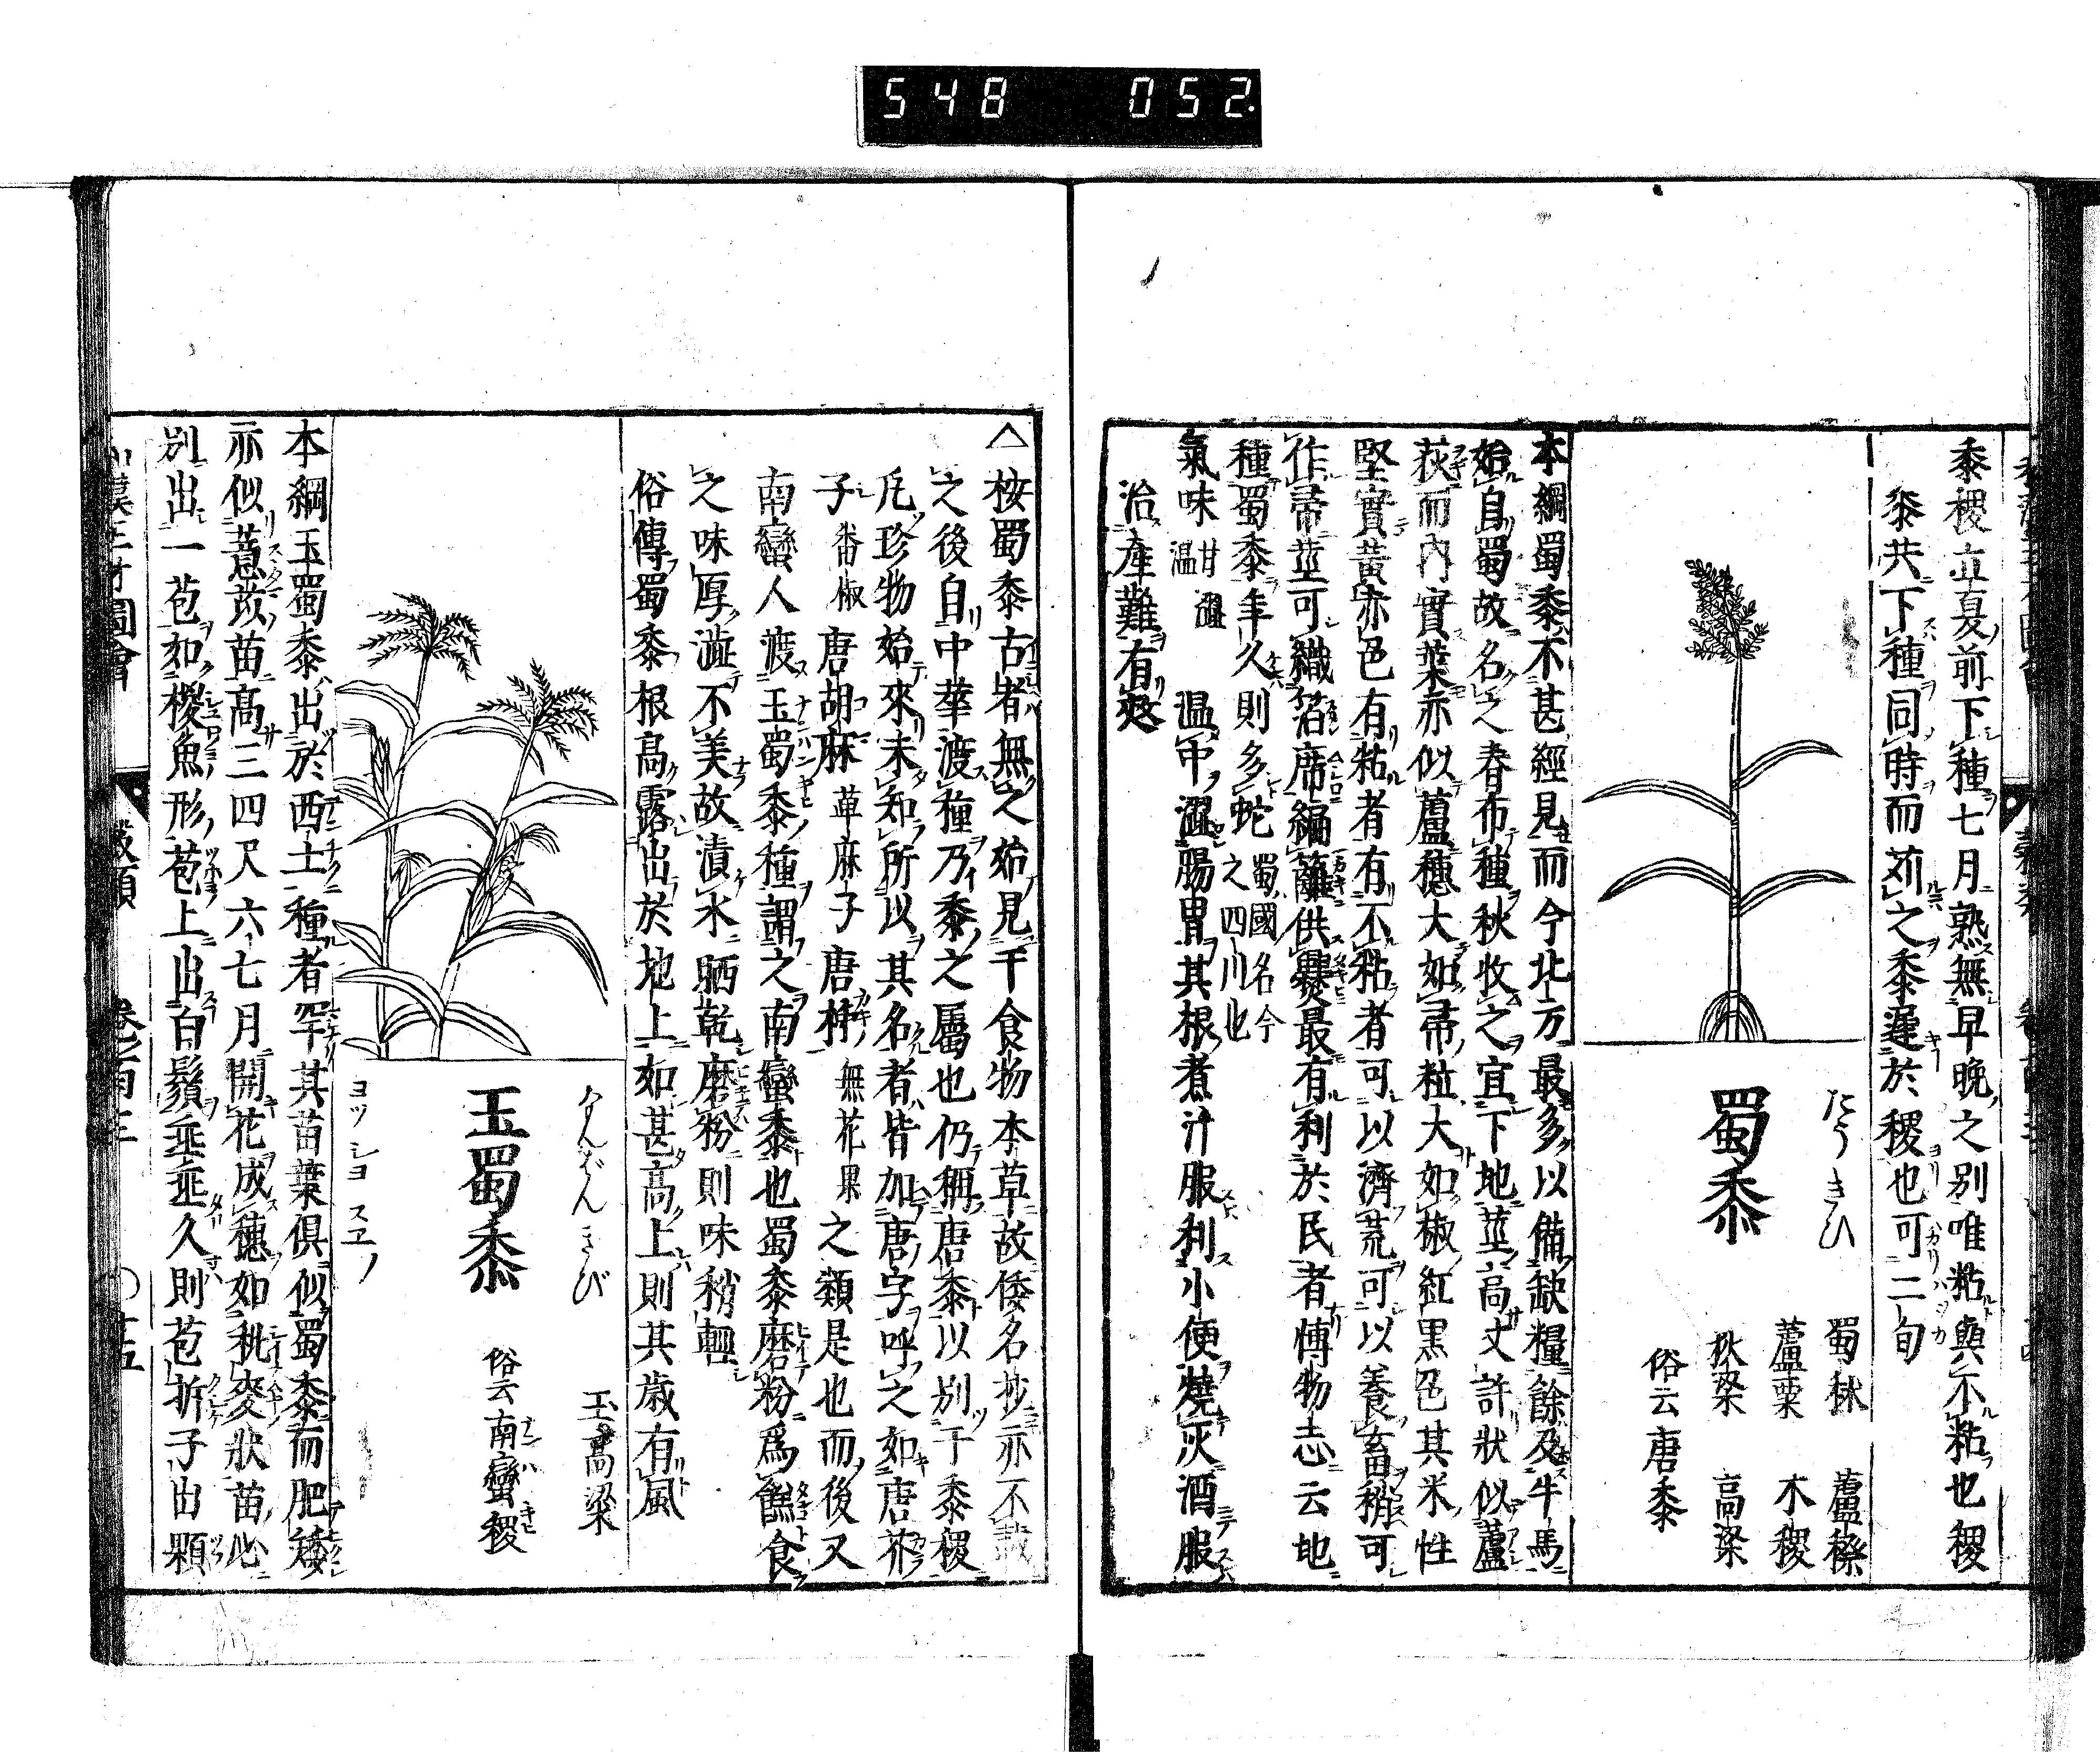 548 052
黍稷立夏前下種七月熟無早晚之別唯粘與不粘也稷
黍共下種同時而苅之黍遲於稷也可二旬
たうきひ
蜀黍
蜀秫 蘆穄
蘆粟 木稷
荻粱 高粱
俗云唐黍
本綱蜀黍不甚經見而今北方最多以備缺糧餘及牛馬
始自蜀故名之春布種秋收之宜下地莖高丈許狀似蘆
荻而內實葉亦似蘆穗大如帚粒大如椒紅黑色其米性
堅實黃赤色有粘者有不粘者可以濟荒可以養畜稍可
作帚莖可織箔席編籬供爨最有利於民者博物志云地
種蜀黍年久則多蛇蜀國名今之四川也
氣味甘澀温 温中澀腸胃其根煮汁服利小便燒灰酒服
治產難有效
△桉蜀黍古者無之始見于食物本草故倭名抄亦不載
之後自中華渡種乃黍之屬也仍稱唐黍以別于黍稷
凡珍物始來未知所以其名者皆加唐字呼之如唐芥
子番椒唐胡麻草麻子唐柹無花果之類是也而後又
南蠻人渡玉蜀黍種謂之南蠻黍也蜀黍磨粉爲餻食
之味厚澁不美故漬水晒乾磨粉則味稍輕
俗傳蜀黍根高露出於地上如甚高上則其歲有風
なんばんきび
玉蜀黍
玉高粱
俗云南蠻稷
本綱玉蜀黍出於西土種者罕其苗葉俱似蜀黍而肥矮
亦似薏苡苗高三四尺六七月開花成穗如秕麥狀苗心
別出一苞如椶魚形苞上出白鬚垂垂久則苞拆子出顆
ヨツシヨスヱノ